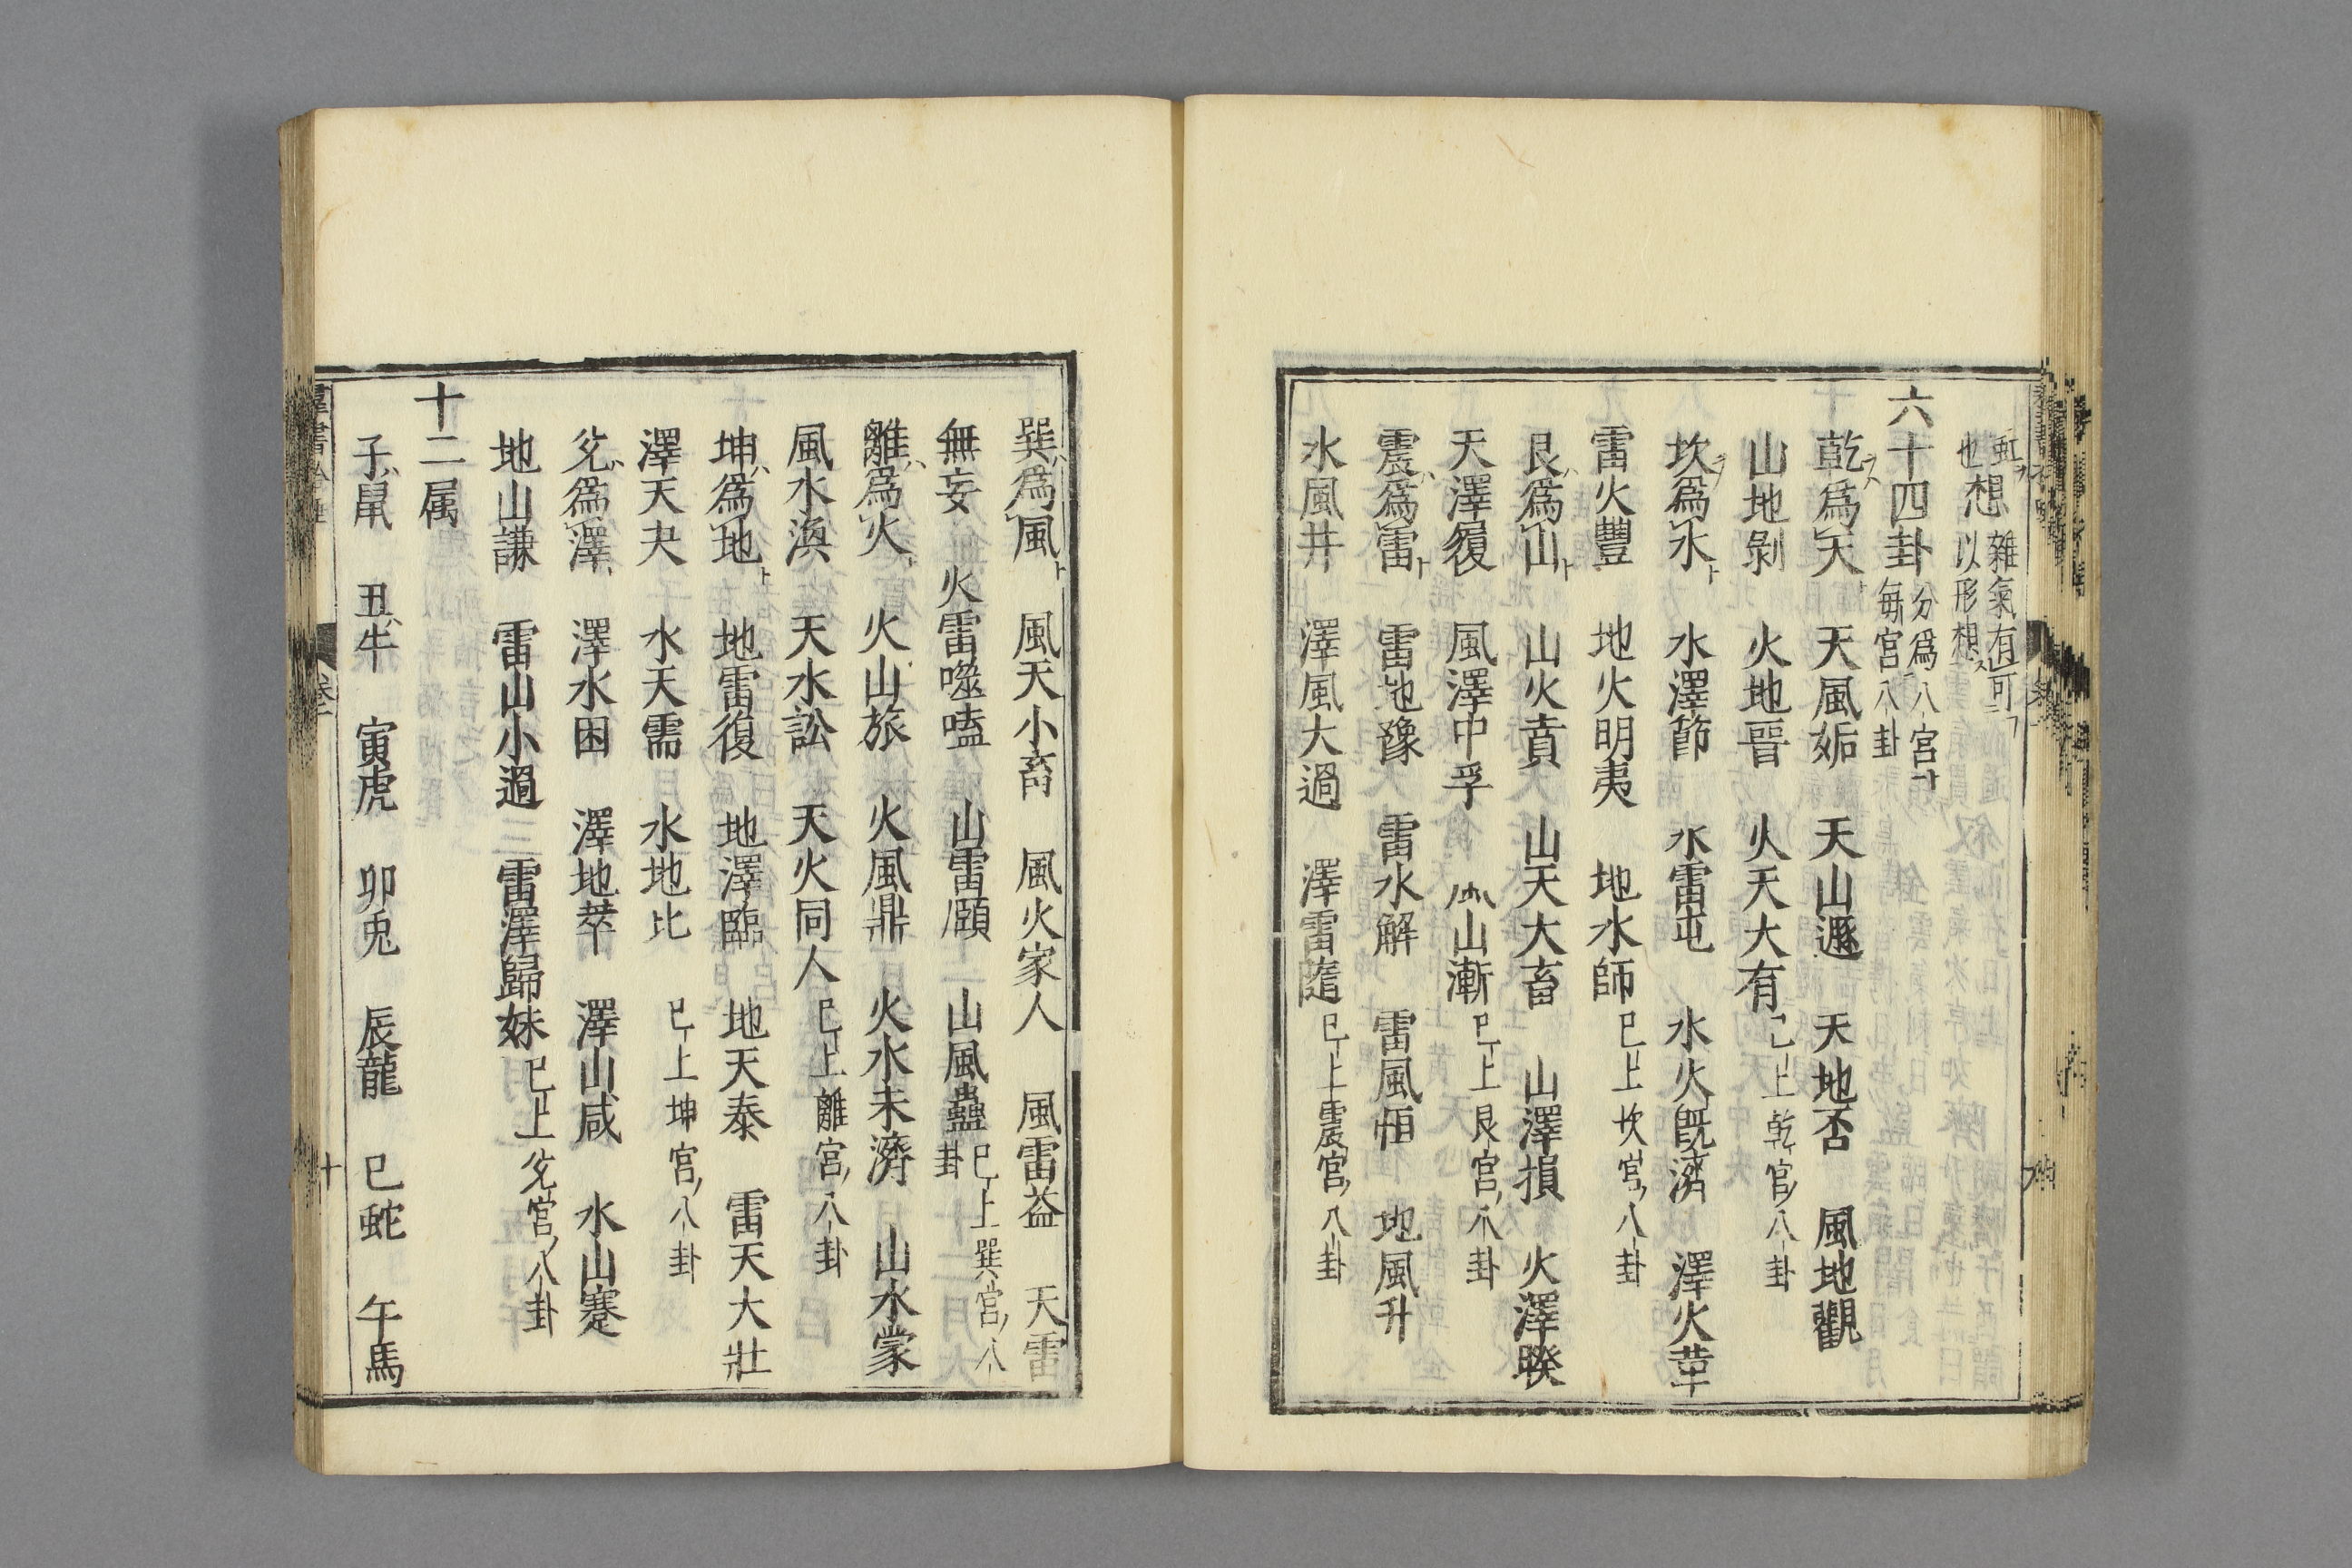 虹也 想 雜氣有可以形想
六十四卦 分爲八宮每宮八卦
乾爲天 天風姤 天山遯 天地否 風地觀
山地剝 火地晉 火天大有 已上乾宮八卦
坎爲水 水澤節 水雷屯 水火旣濟 澤火革
雷火豐 地火明夷 地水師 已上坎宮八卦
艮爲山 山火賁 山天大畜 山澤損 火澤睽
天澤履 風澤中孚 風山漸 已上艮宮八卦
震爲雷 雷地豫 雷水解 雷風恒 地風升
水風井 澤風大過 澤雷隨 已上震宮八卦
巽爲風 風天小畜 風火家人 風雷益 天雷
無妄 火雷噬嗑 山雷頤 山風蠱 已上巽宮八卦
離爲火 火山旅 火風鼎 火水未濟 山水蒙
風水渙 天水訟 天火同人 已上離宮八卦
坤爲地 地雷復 地澤臨 地天泰 雷天大壯
澤天夬 水天需 水地比 已上坤宮八卦
兌爲澤 澤水困 澤地萃 澤山咸 水山蹇
地山謙 雷山小過 雷澤歸妹 已上兌宮八卦
十二属
子鼠 丑牛 寅虎 卯兎 辰龍 巳蛇 午馬
十